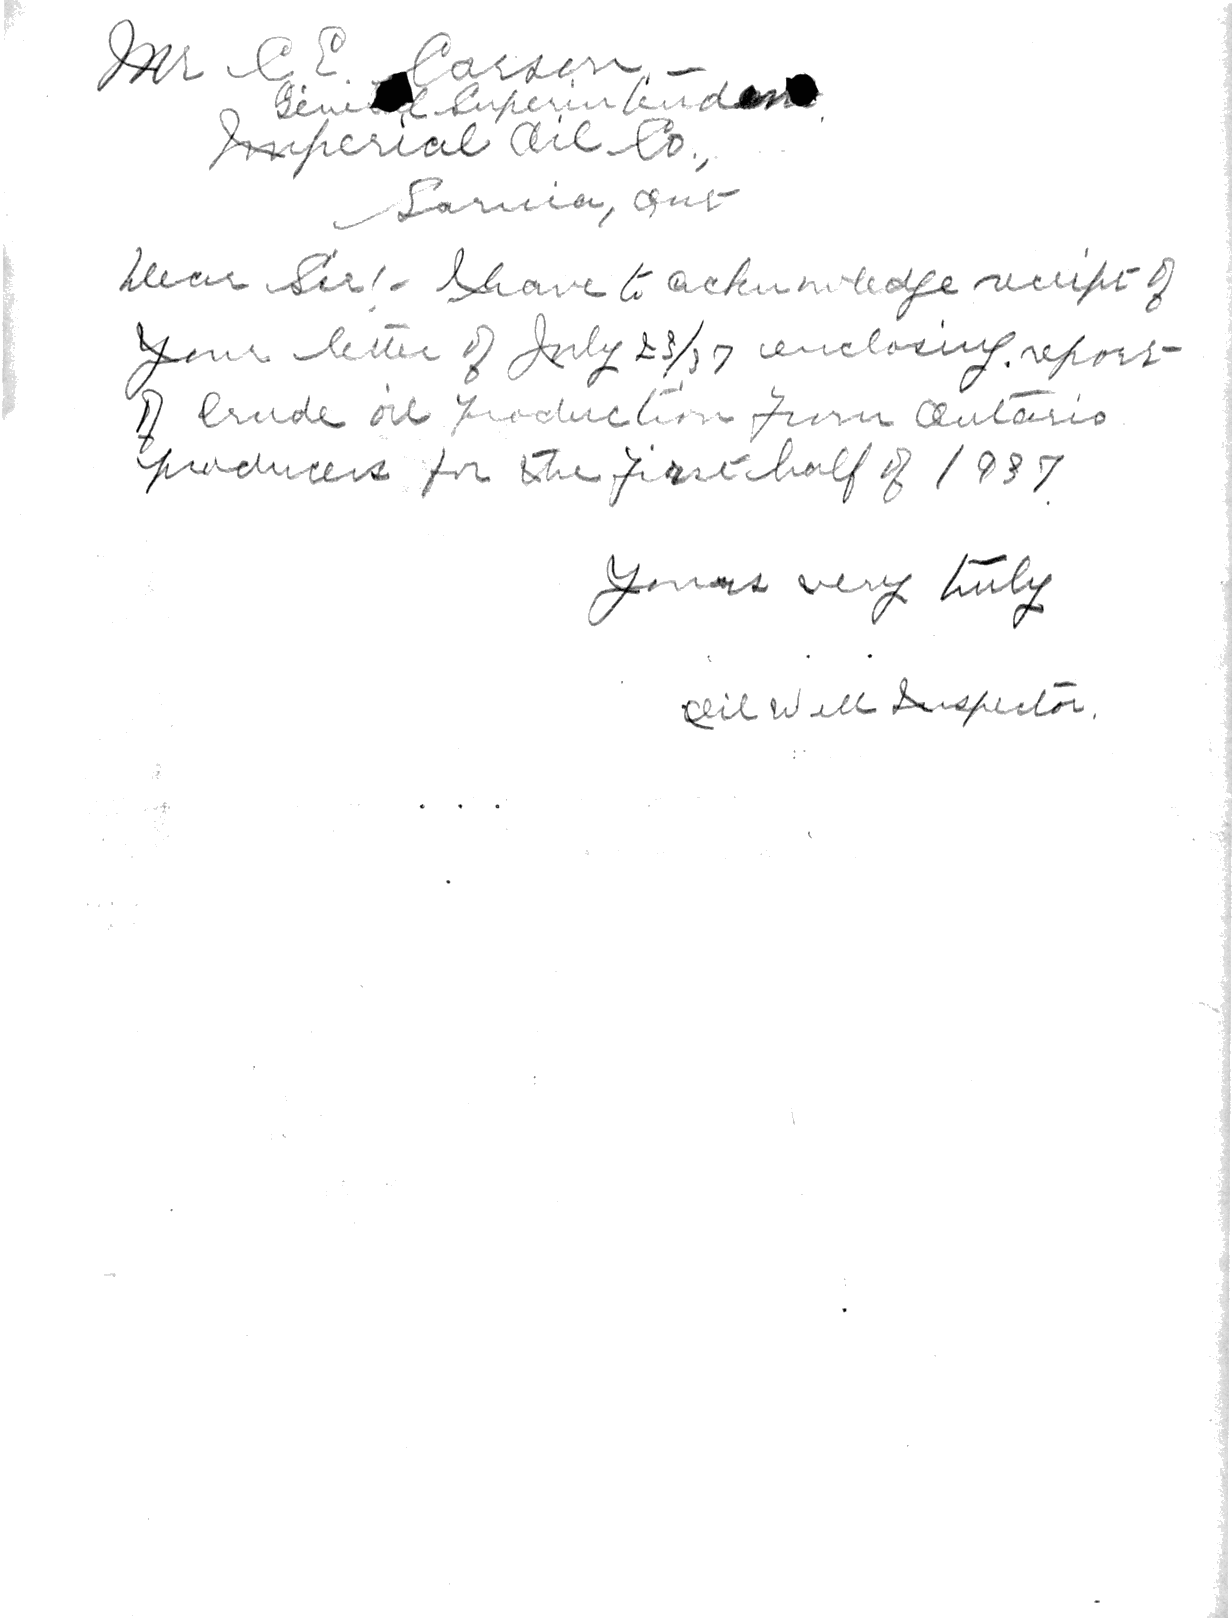 Mr C E. Carson, —
General Superintendent.
Imperial Oil Co.,
Sarnia, Ont
Dear Sir!- I have to acknowledge receipt of
your letter of July 23/37 enclosing report
of Crude oil production from Ontario
producers for the first half of 1937.
Yours very truly
Oil Well Inspector.